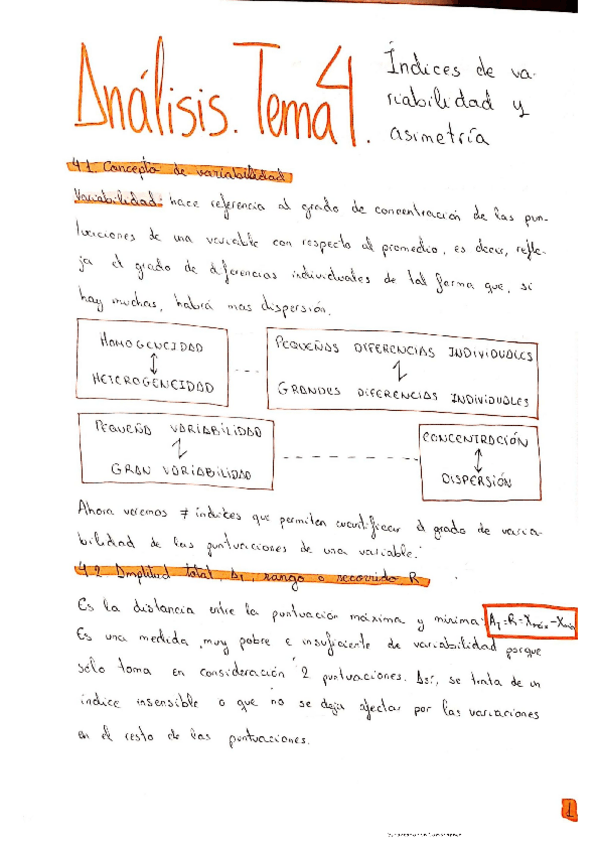 Análisis. Tema 4.
Índices de va-
riabilidad y
asimetría
4.1 Concepto de variabilidad
Variabilidad: hace referencia al grado de concentración de las pun-
tuaciones de una variable con respecto al promedio, es decir, refle-
ja el grado de diferencias individuales de tal forma que, si
hay muchas, habrá mas dispersión.
HOMOGENEIDAD
↕
HETEROGENEIDAD
PEQUEÑAS DIFERENCIAS INDIVIDUALES
↕
GRANDES DIFERENCIAS INDIVIDUALES
PEQUEÑA VARIABILIDAD
↕
GRAN VARIABILIDAD
CONCENTRACIÓN
↕
DISPERSIÓN
Ahora veremos ≠ índices que permiten cuantificar el grado de varia-
bilidad de las puntuaciones de una variable.
4.2 Amplitud total, A_T, rango o recorrido R
Es la distancia entre la puntuación máxima y mínima: A_T=R=X_máx-X_mín
Es una medida muy pobre e insuficiente de variabilidad porque
sólo toma en consideración 2 puntuaciones. Así, se trata de un
índice insensible o que no se deja afectar por las variaciones
en el resto de las puntuaciones.
1